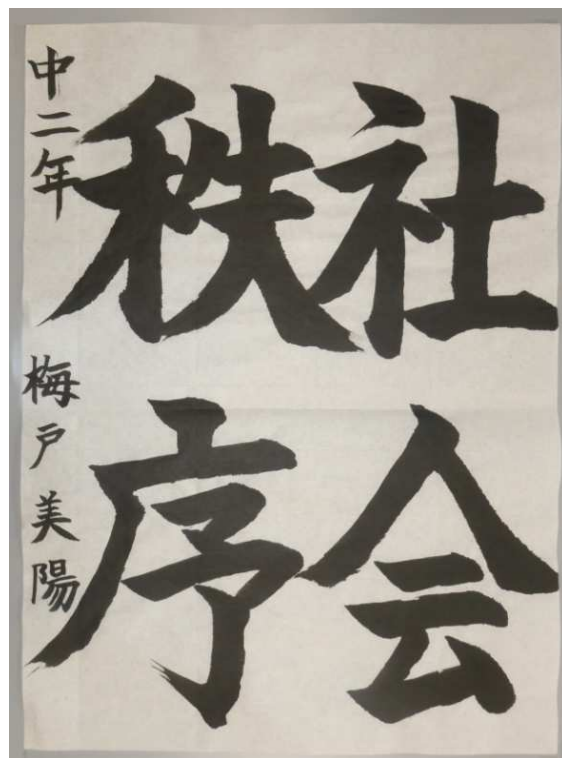 社会
秩序
中二年 梅戸美陽